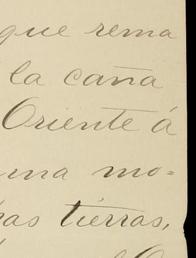 que rema
la caña
Oriente á
una mo-
tierras,